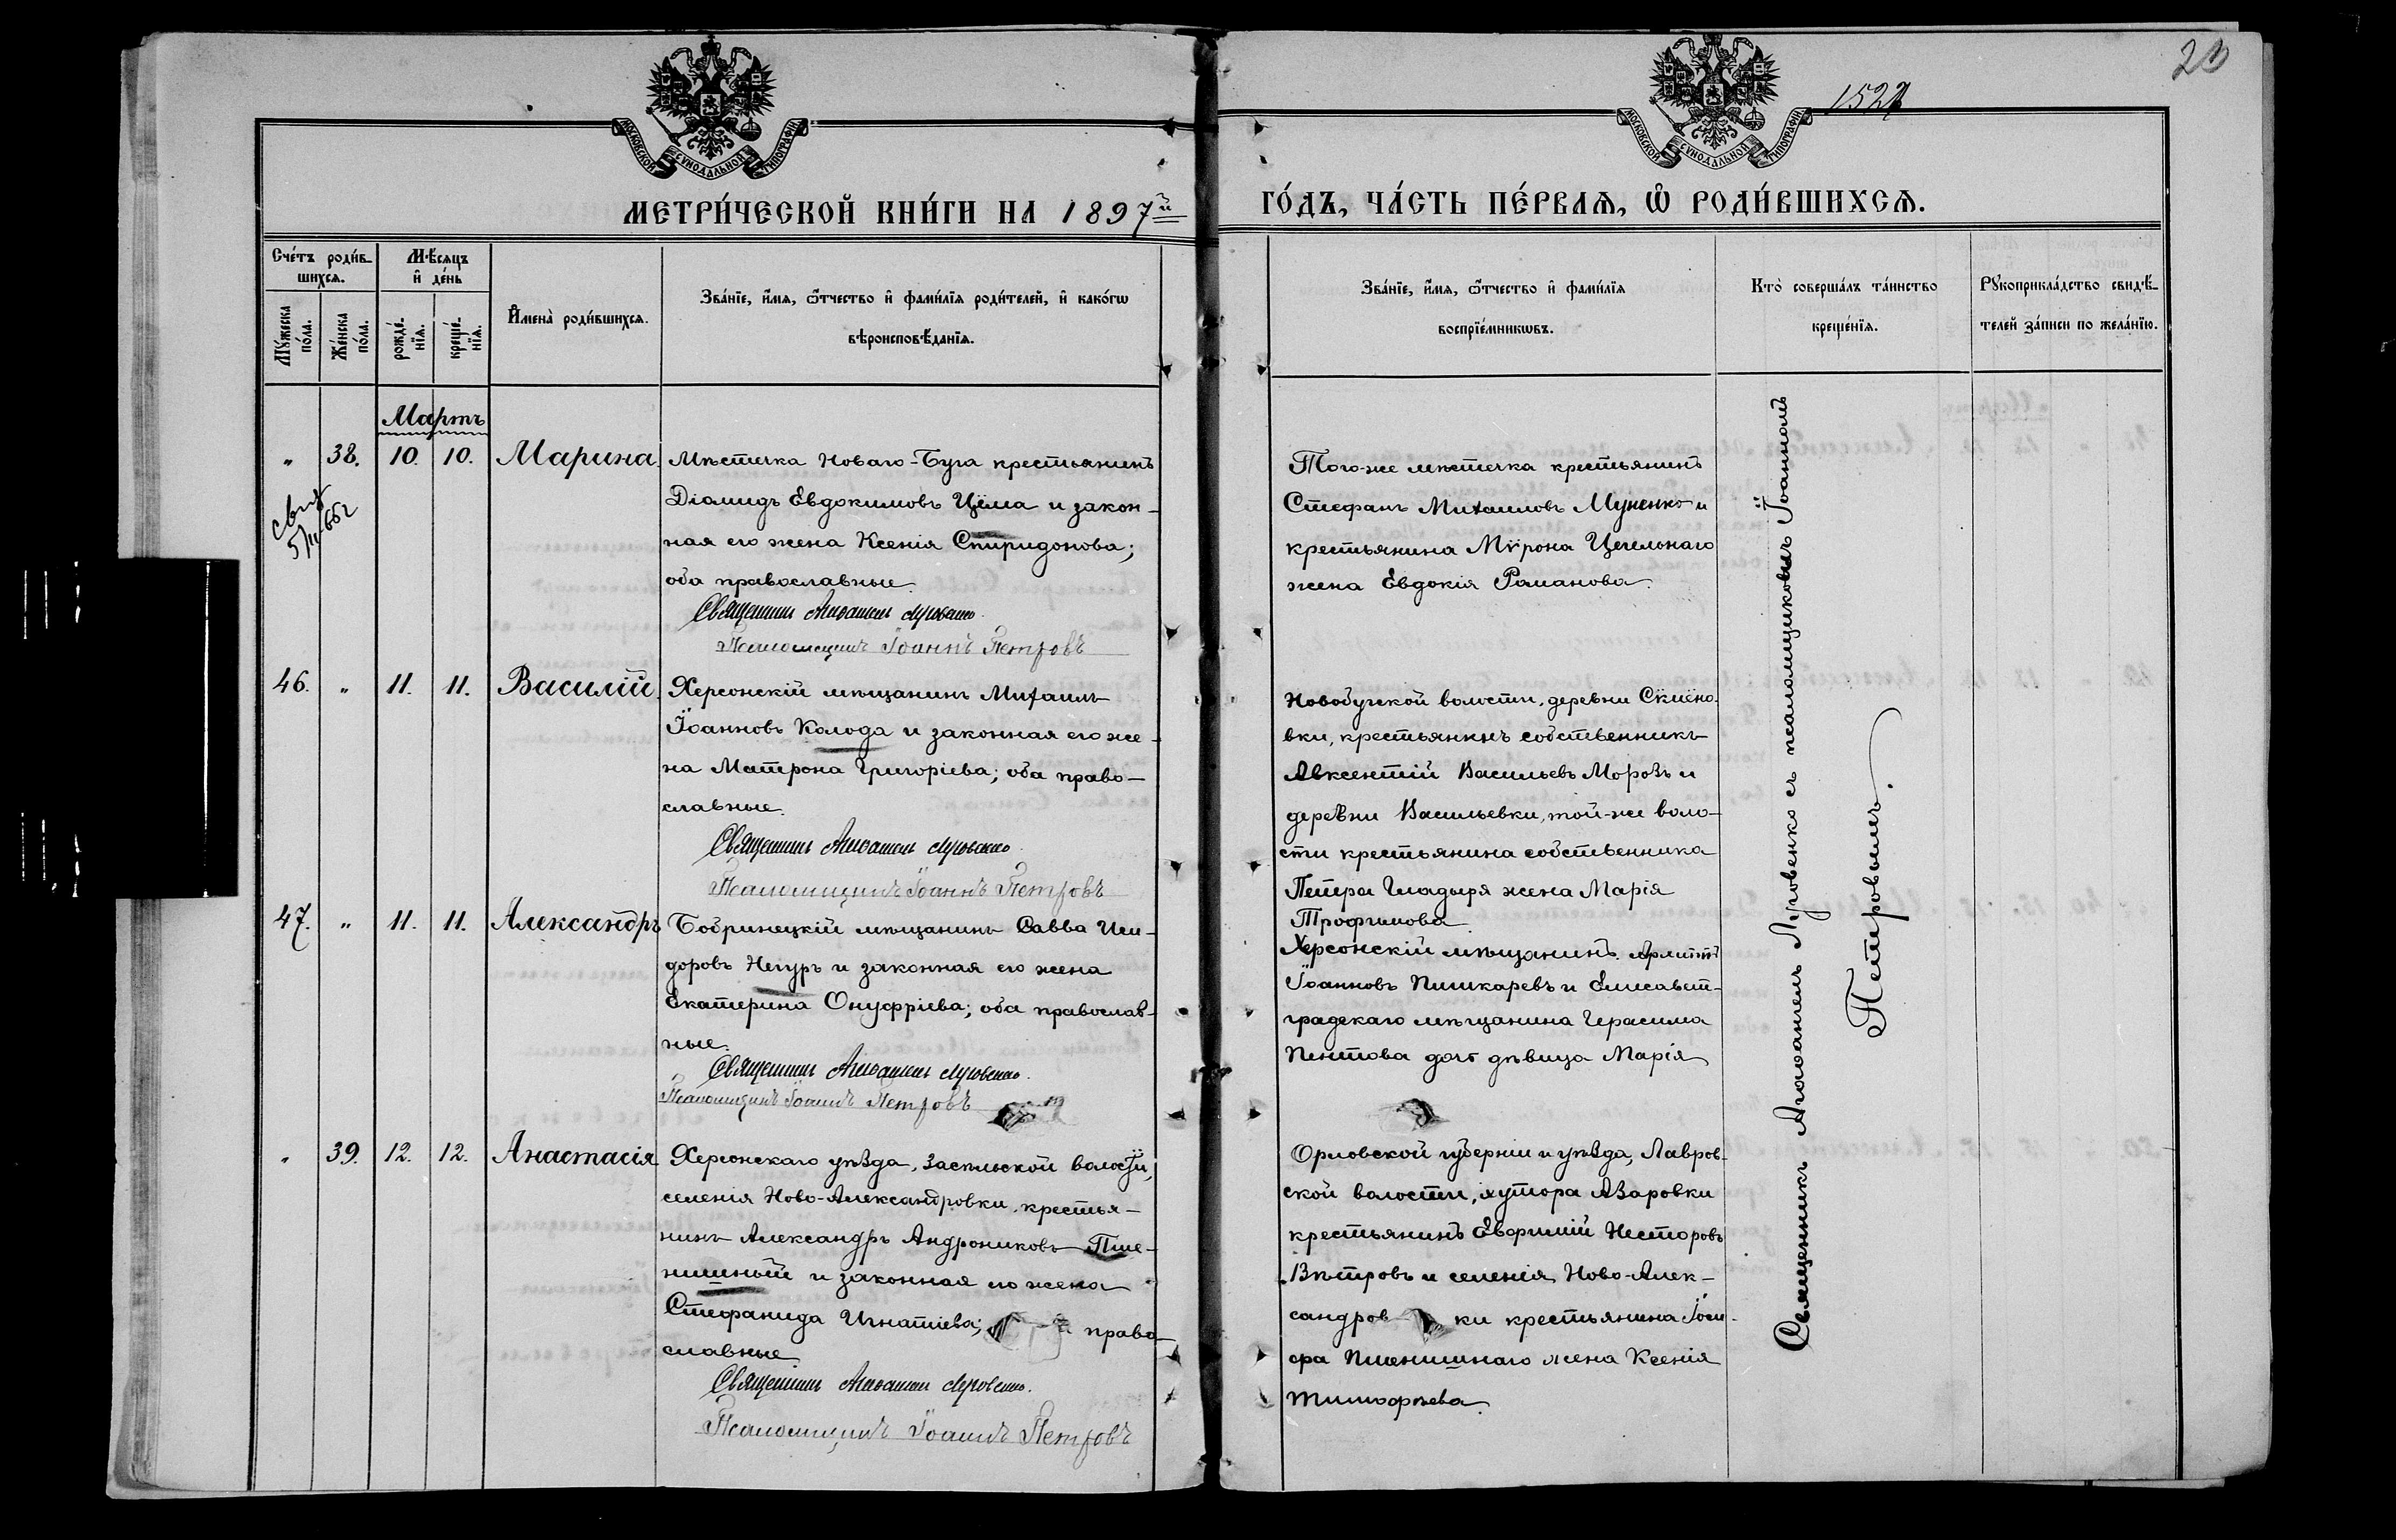 20
1522
МОСКОВСКОЙ СѴНОДАЛЬНОЙ ТИПОГРАФІИ
МОСКОВСКОЙ СѴНОДАЛЬНОЙ ТИПОГРАФІИ
МЕТРИ́ЧЕСКОЙ КНИ́ГИ НА 1897й
ГО́ДЪ, ЧА́СТЬ ПЕ́РВАѦ, Ѽ РОДИ́ВШИХСѦ.
Сче́тъ роди́в-
шихсѧ.
Мꙋ́жеска по́ла.
Же́нска по́ла.
Мѣ́сѧцъ
и҆ де́нь
рожде́-
нїѧ.
креще́-
нїѧ.
И҆мена̀ роди́вшихсѧ.
Зва́нїе, и҆́мѧ, ѻ҆́тчество и҆ фами́лїѧ роди́телей, и҆ како́гѡ
вѣроисповѣ́данїѧ.
Зва́нїе, и҆́мѧ, ѻ҆́тчество и҆ фами́лїѧ
воспрїе́мникѡвъ.
Кто̀ соверша́лъ та́инство
креще́нїѧ.
Рꙋкоприкла́дство свидѣ́-
телей за́писи по жела́нїю.
Мартъ
„ 38. 10. 10. Марина
Мѣстечка Новаго-Буга крестьянинъ
Діамидъ Евдокимовъ Цёма и закон-
ная его жена Ксенія Спиридонова;
оба православные.
Священникъ Агаѳангелъ Луговенко.
Псаломщикъ Іоаннъ Петровъ
Того-же мѣстечка крестьянинъ
Стефанъ Михаиловъ Муненко и
крестьянина Мѵрона Цегельнаго
жена Евдокія Романова.
46. „ 11. 11. Василій
Херсонскій мѣщанинъ Михаилъ
Іоанновъ Колода и законная его же-
на Матрона Григоріева; оба право-
славные.
Священникъ Агаѳангелъ Луговенко.
Псаломщикъ Іоаннъ Петровъ
Новобугской волости, деревни
вки, крестьянинъ собственникъ
Авксентій Васильевъ Морозъ и
деревни Васильевки, той-же воло-
сти крестьянина собственника
Петра Гладыря жена Марія
Трофимова
47. „ 11. 11. Александръ
Бобринецкій мѣщанинъ Савва Иси-
доровъ Негуръ и законная его жена
Екатерина Онуфріева; оба православ-
ные.
Священникъ Агаѳангелъ Луговенко.
Псаломщикъ Іоаннъ Петровъ
Херсонскій мѣщанинъ
Іоанновъ Пишкаревъ и Елисавет-
градскаго мѣщанина Герасима
Пентова дочь дѣвица Марія
„ 39. 12. 12. Анастасія
Херсонскаго уѣзда, Засельской волости,
селенія Ново-Александровки, крестья-
нинъ Александръ Андрониковъ Пше-
нишный и законная его жена
Стефанида Игнатіева; право-
славные.
Священникъ Агаѳангелъ Луговенко.
Псаломщикъ Іоаннъ Петровъ
Орловской губерніи и уѣзда, Лавров-
ской волости, хутора Азаровки
крестьянинъ Евфимій Несторовъ
Вѣтровъ и селенія Ново-Алек-
сандров ки крестьянина Іоси-
фа Пшенишнаго жена Ксенія
Тимофѣева.
Священникъ Агаѳангелъ Луговенко съ псаломщикомъ Іоанномъ
Петровымъ.